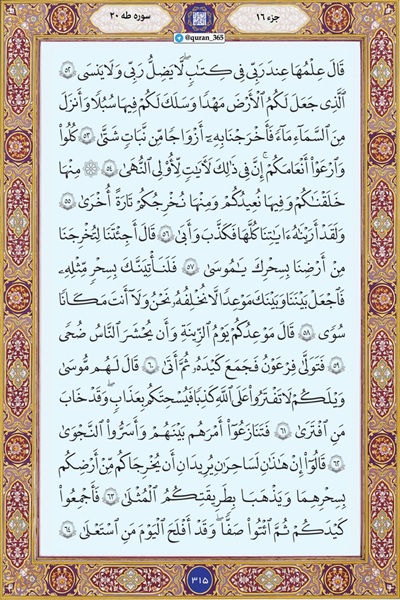 جزء ۱۶
سوره طه ۲۰
@quran_365
قَالَ عِلْمُهَا عِندَ رَبِّي فِي كِتَٰبٍۖ لَّا يَضِلُّ رَبِّي وَلَا يَنسَى ۝٥٢
ٱلَّذِي جَعَلَ لَكُمُ ٱلْأَرْضَ مَهْدًا وَسَلَكَ لَكُمْ فِيهَا سُبُلًا وَأَنزَلَ
مِنَ ٱلسَّمَآءِ مَآءً فَأَخْرَجْنَا بِهِۦٓ أَزْوَٰجًا مِّن نَّبَاتٍ شَتَّىٰ ۝٥٣ كُلُوا۟
وَٱرْعَوْا۟ أَنْعَٰمَكُمْۗ إِنَّ فِي ذَٰلِكَ لَءَايَٰتٍ لِّأُو۟لِي ٱلنُّهَىٰ ۝٥٤ ۞ مِنْهَا
خَلَقْنَٰكُمْ وَفِيهَا نُعِيدُكُمْ وَمِنْهَا نُخْرِجُكُمْ تَارَةً أُخْرَىٰ ۝٥٥
وَلَقَدْ أَرَيْنَٰهُ ءَايَٰتِنَا كُلَّهَا فَكَذَّبَ وَأَبَىٰ ۝٥٦ قَالَ أَجِئْتَنَا لِتُخْرِجَنَا
مِنْ أَرْضِنَا بِسِحْرِكَ يَٰمُوسَىٰ ۝٥٧ فَلَنَأْتِيَنَّكَ بِسِحْرٍ مِّثْلِهِۦ
فَٱجْعَلْ بَيْنَنَا وَبَيْنَكَ مَوْعِدًا لَّا نُخْلِفُهُۥ نَحْنُ وَلَآ أَنتَ مَكَانًا
سُوًى ۝٥٨ قَالَ مَوْعِدُكُمْ يَوْمُ ٱلزِّينَةِ وَأَن يُحْشَرَ ٱلنَّاسُ ضُحًى
۝٥٩ فَتَوَلَّىٰ فِرْعَوْنُ فَجَمَعَ كَيْدَهُۥ ثُمَّ أَتَىٰ ۝٦٠ قَالَ لَهُم مُّوسَىٰ
وَيْلَكُمْ لَا تَفْتَرُوا۟ عَلَى ٱللَّهِ كَذِبًا فَيُسْحِتَكُم بِعَذَابٍۖ وَقَدْ خَابَ
مَنِ ٱفْتَرَىٰ ۝٦١ فَتَنَٰزَعُوٓا۟ أَمْرَهُم بَيْنَهُمْ وَأَسَرُّوا۟ ٱلنَّجْوَىٰ
۝٦٢ قَالُوٓا۟ إِنْ هَٰذَٰنِ لَسَٰحِرَٰنِ يُرِيدَانِ أَن يُخْرِجَاكُم مِّنْ أَرْضِكُم
بِسِحْرِهِمَا وَيَذْهَبَا بِطَرِيقَتِكُمُ ٱلْمُثْلَىٰ ۝٦٣ فَأَجْمِعُوا۟
كَيْدَكُمْ ثُمَّ ٱئْتُوا۟ صَفًّاۚ وَقَدْ أَفْلَحَ ٱلْيَوْمَ مَنِ ٱسْتَعْلَىٰ ۝٦٤
٣١٥